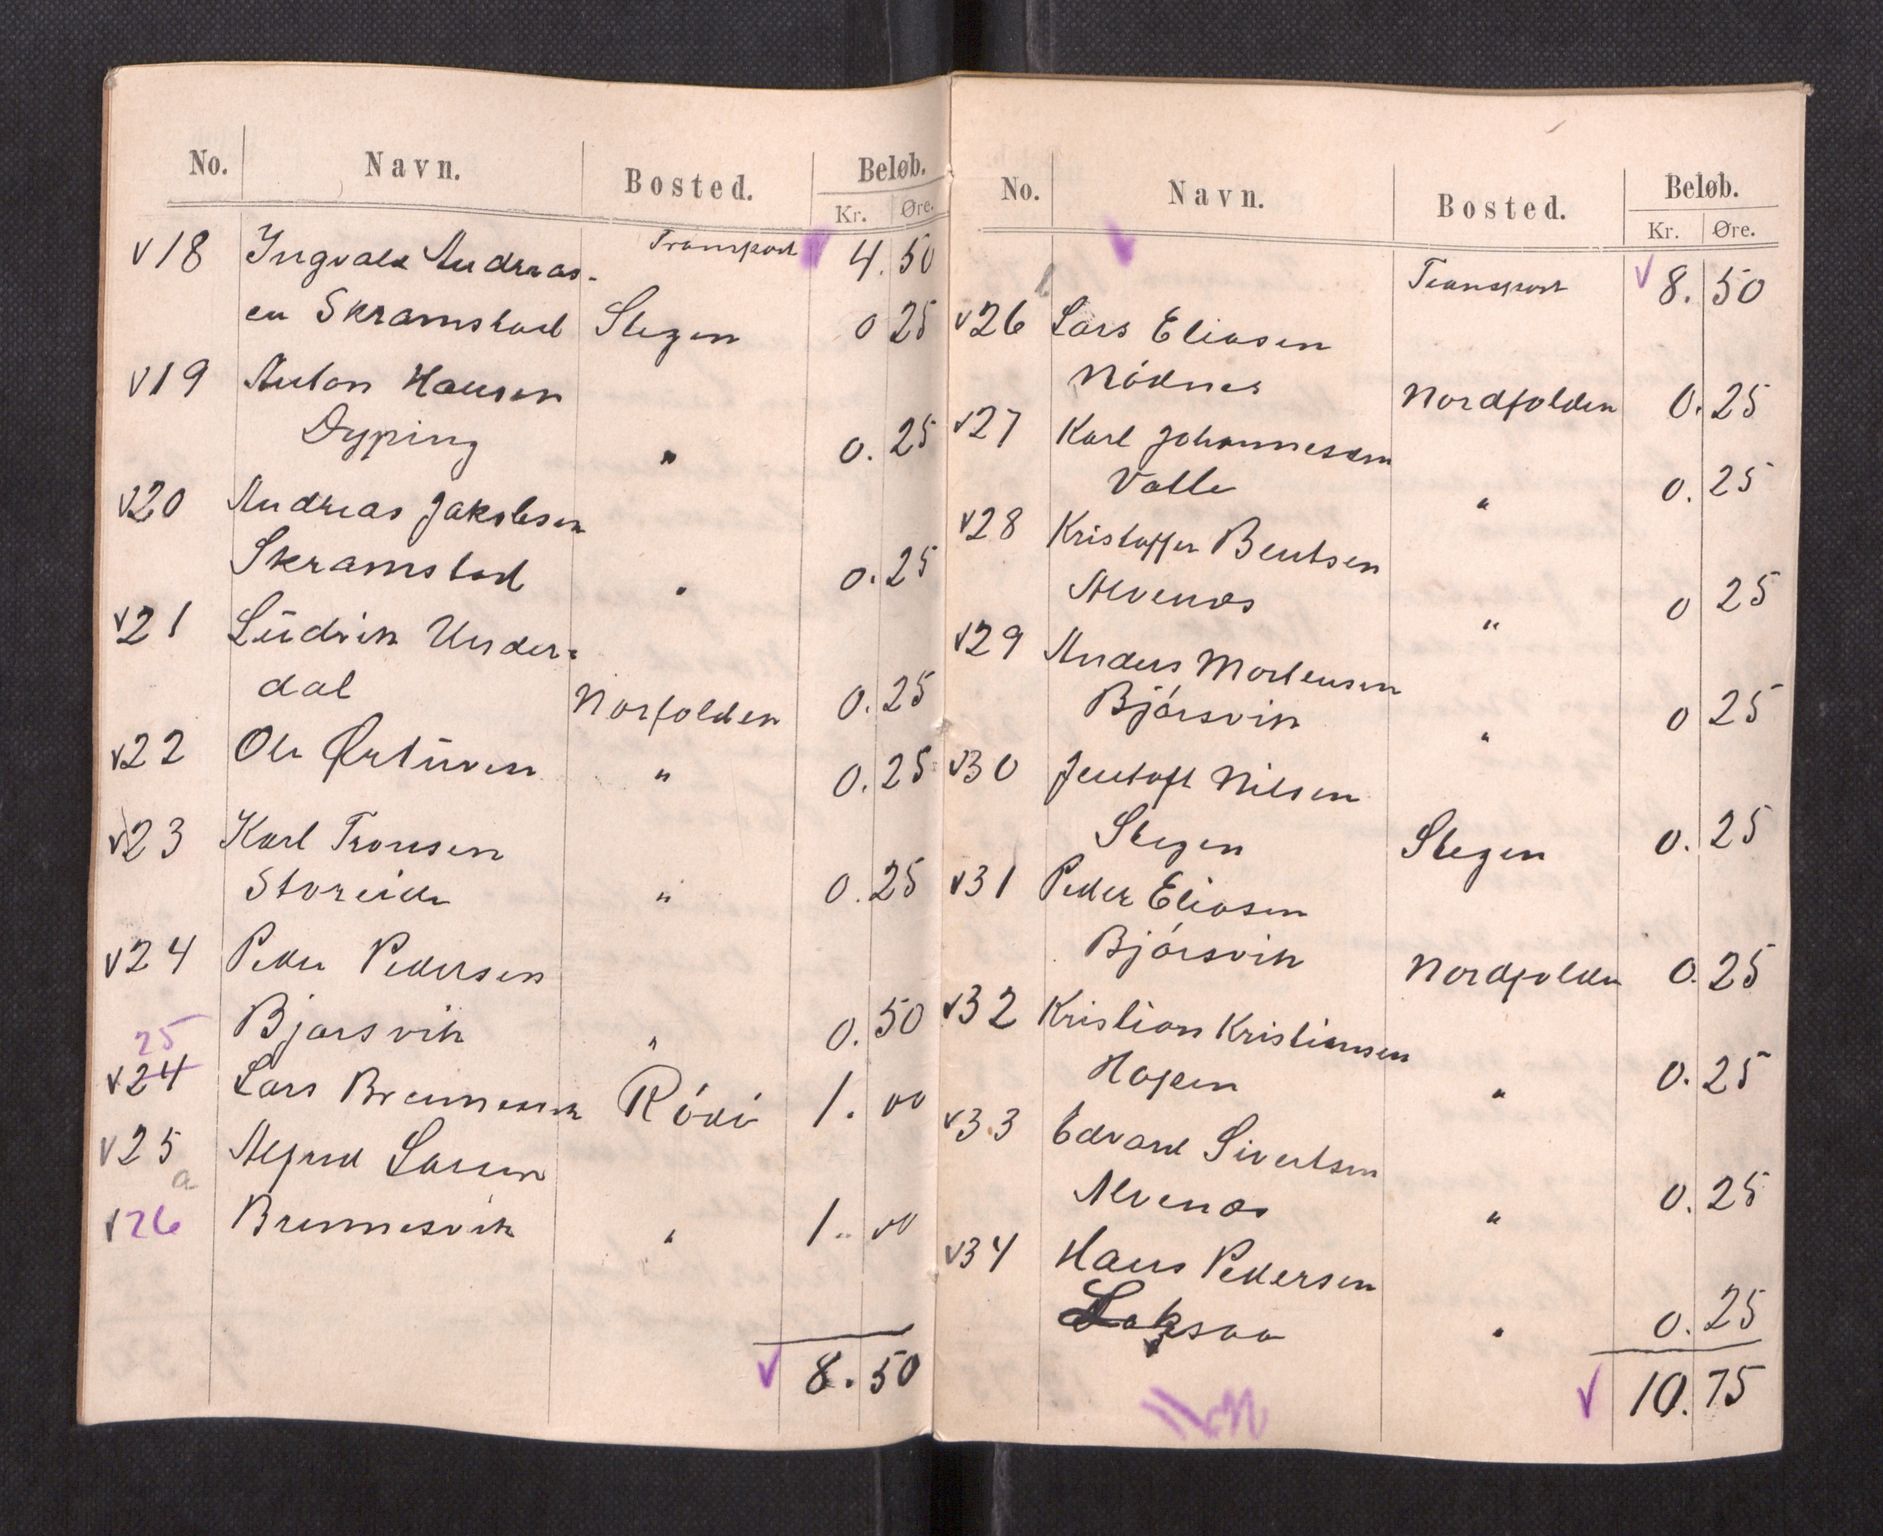 No. Navn. Bosted. Beløb.
Kr. Øre.
Transport 4.50
v18 Ingvald Andreas-
en Skramstad Stegen 0 25
v19 Anton Hansen
Dyping " 0.25
v20 Andreas Jakobsen
Skramstad " 0.25
v21 Ludvik Under-
dal Norfolden 0.25
v22 Ole Ørtuven " 0.25
v23 Karl Tronsen
Storeide " 0.25
v24 Peder Pedersen
Bjørsvik " 0.50
25
v24 Lars Brennesvik Rödö 1.00
v25 Alfred Larsen
a
v26 Brennesvik " 1.00
v 8.50
No. Navn. Bosted. Beløb.
Kr. Øre.
Transport v 8.50
v26 Lars Eliasen
Nödnes Nordfolden 0.25
v27 Karl Johannesen
Valle " 0.25
v28 Kristoffer Bentsen
Alvenes " 0 25
v29 Anders Mortensen
Bjórsvik " 0 25
v30 Jentoft Nilsen
Stegen Stegen 0.25
v31 Peder Eliasen
Bjórsvik Nordfolden 0.25
v32 Kristian Kristiansen
Hopen " 0.25
v33 Edvard Sivertsen
Alvenes " 0.25
v34 Hans Pedersen
Laksaa " 0.25
v 10.75